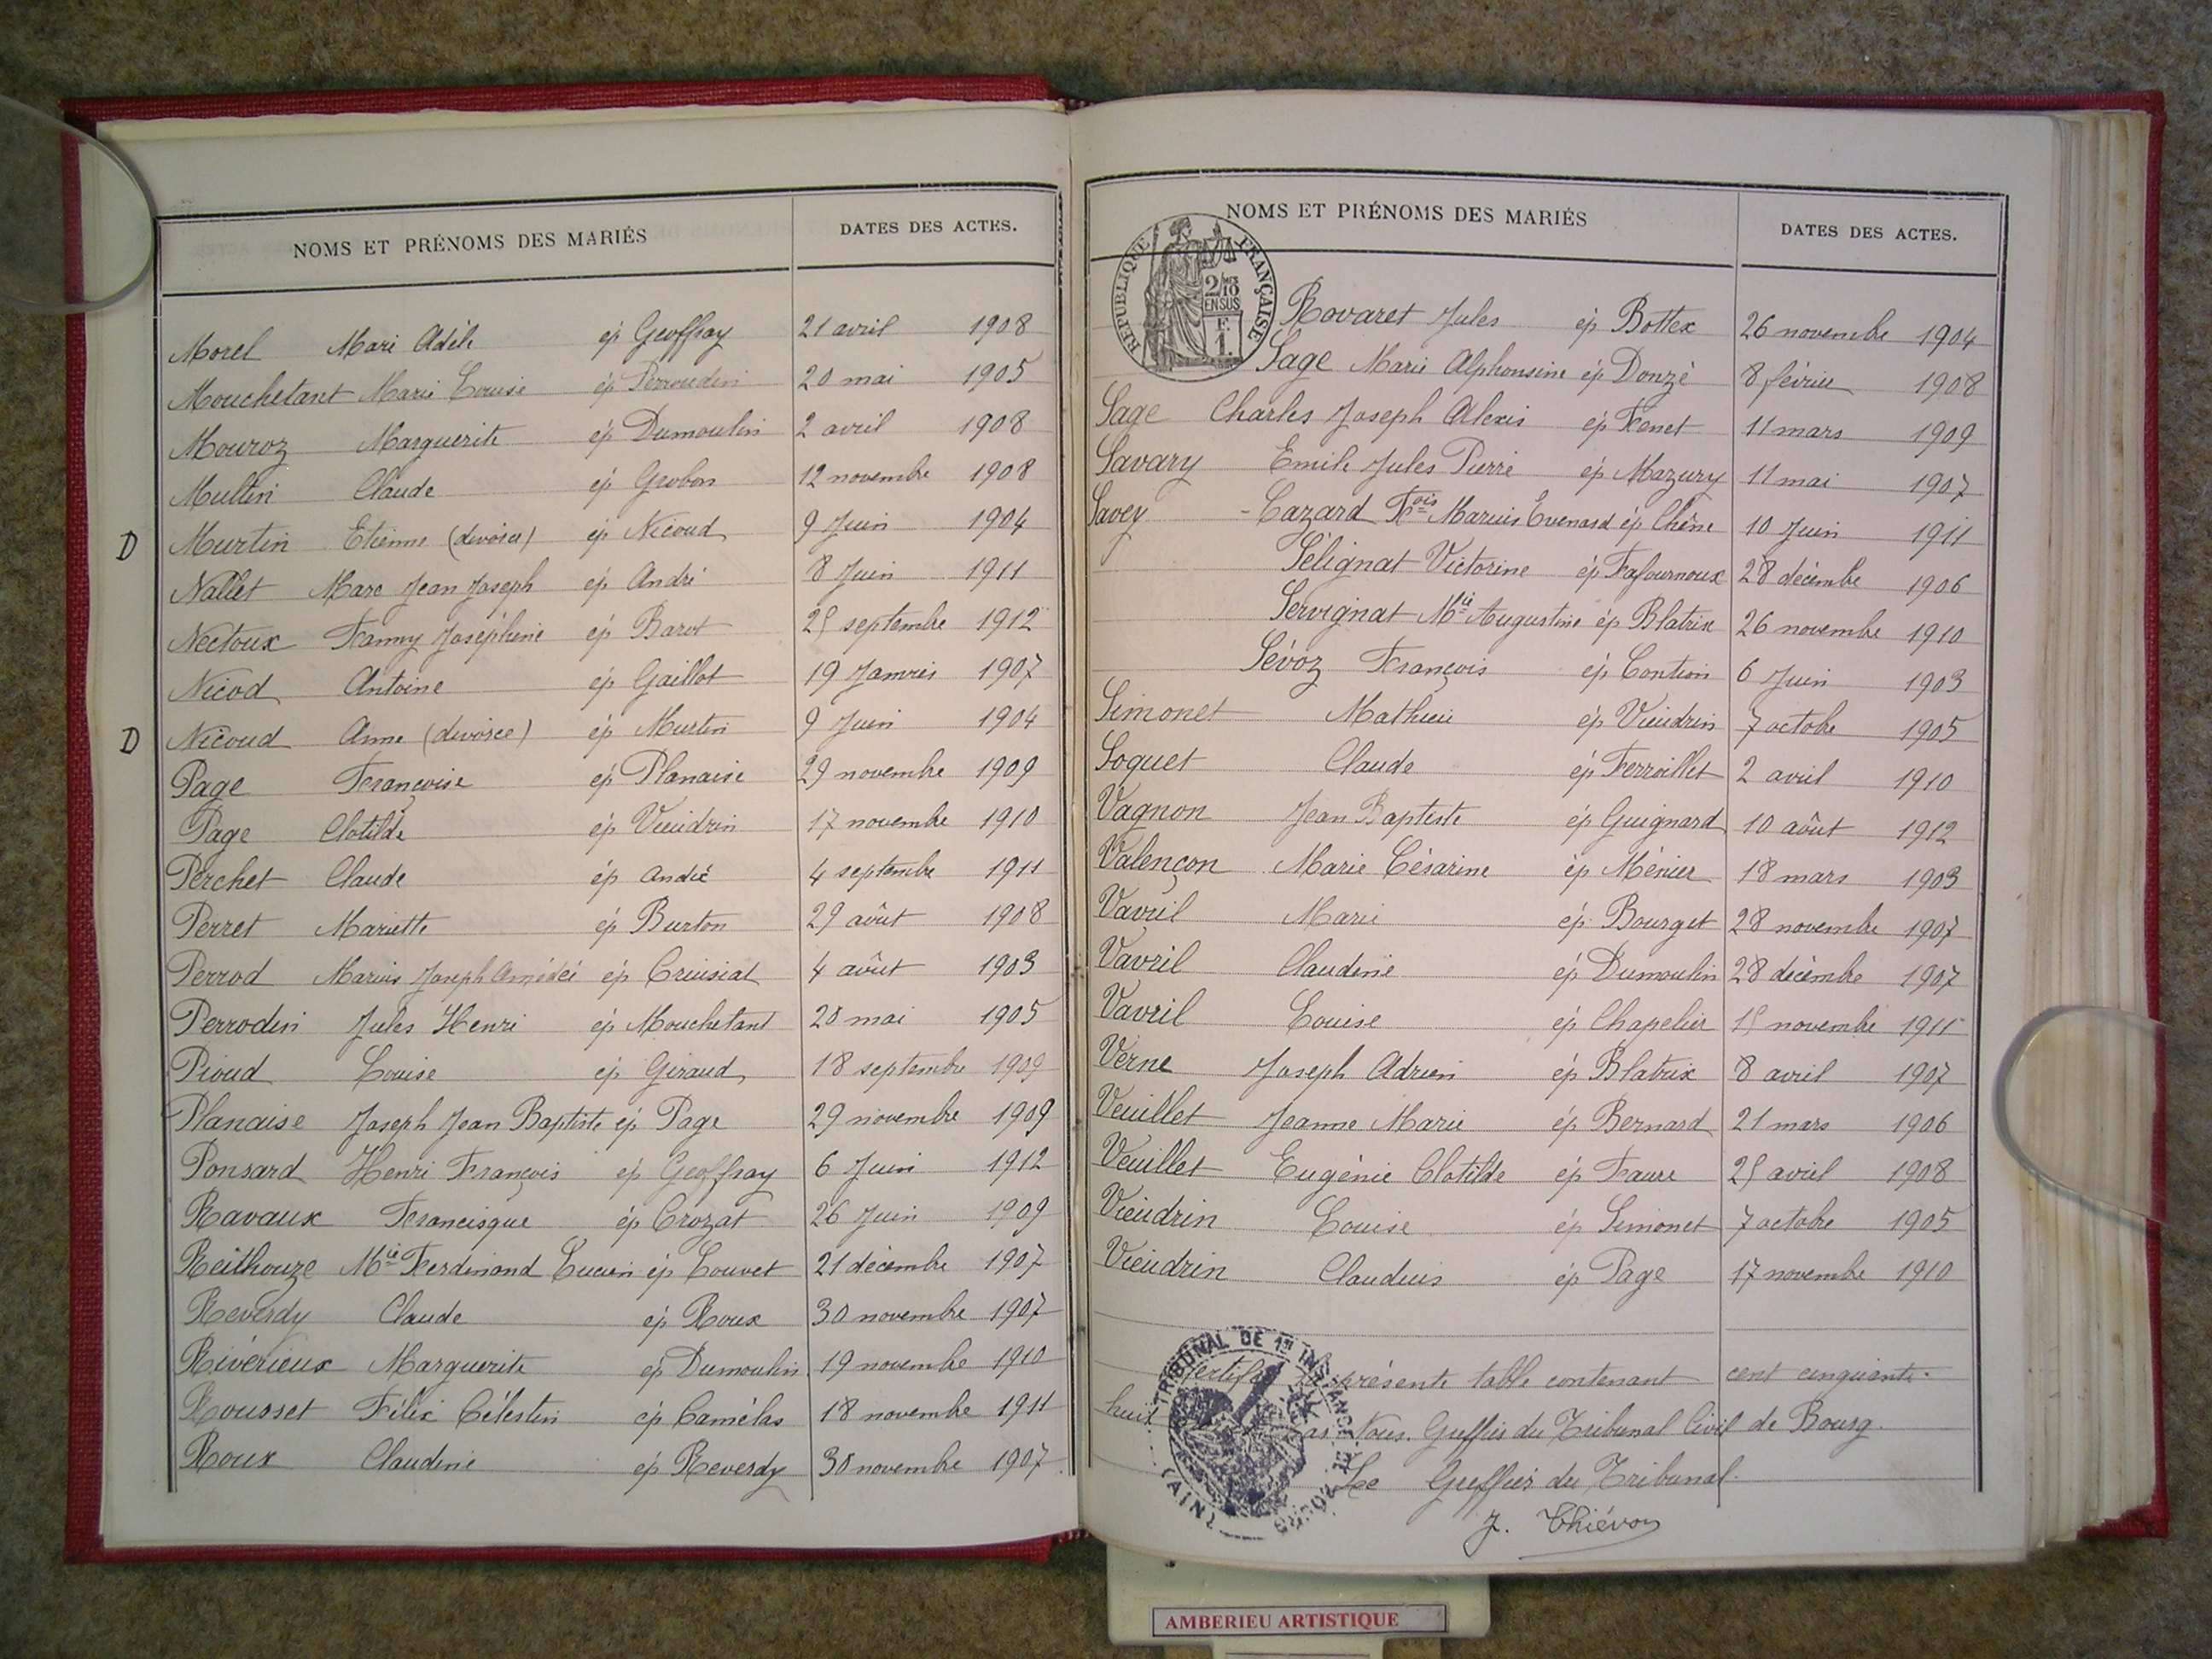 NOMS ET PRÉNOMS DES MARIÉS DATES DES ACTES.
Morel Marie Adèle ép Geoffray 21 avril 1908
Mouchetant Marie Louise ép Perroudin 20 mai 1905
Mouroz Marguerite ép Dumoulin 2 avril 1908
Multin Claude ép Grobon 12 novembre 1908
D Murtin Etienne (divorcé) ép Nicoud 9 Juin 1904
Nallet Marc Jean Joseph ép André 8 Juin 1911
Nectoux Fanny Joséphine ép Barot 25 septembre 1912
Nicod Antoine ép Gaillot 19 Janvier 1907
D Nicoud Anne (divorcée) ép Murtin 9 Juin 1904
Page Françoise ép Planaise 29 novembre 1909
Page Clotilde ép Vieudrin 17 novembre 1910
Perchet Claude ép André 4 septembre 1911
Perret Mariette ép Burton 29 août 1908
Perrod Marius Joseph Amédée ép 4 août 1903
Perrodin Jules Henri ép Mouchetant 20 mai 1905
Pioud Louise ép Giraud 18 septembre 1909
Planaise Joseph Jean Baptiste ép Page 29 novembre 1909
Ponsard Henri François ép Geoffray 6 Juin 1912
Ravaux Francisque ép Crozat 26 Juin 1909
Reithouze Mie Ferdinand Lucien ép Louvet 21 décembre 1907
Reverdy Claude ép Roux 30 novembre 1907
Rivérieux Marguerite ép Dumoulin 19 novembre 1910
Rousset Félix Célestin ép Camélas 18 novembre 1911
Roux Claudine ép Reverdy 30 novembre 1907
NOMS ET PRÉNOMS DES MARIÉS DATES DES ACTES.
RÉPUBLIQUE FRANÇAISE
2/10 EN SUS
F. 1.
Rovaret Jules ép Bottex 26 novembre 1904
Sage Marie Alphonsine ép Donzé 8 février 1908
Sage Charles Joseph Alexis ép Fenet 11 mars 1909
Savary Emile Jules Pierre ép Mazury 11 mai 1907
Savey - Cazard Fois Marius Evenard ép Chêne 10 Juin 1911
Sélignat Victorine ép Fafournoux 28 décembre 1906
Servignat Mie Augustine ép Blatrix 26 novembre 1910
Sévoz François ép Contion 6 Juin 1903
Simonet Mathieu ép Vieudrin 7 octobre 1905
Soquet Claude ép Ferroillet 2 avril 1910
Vagnon Jean Baptiste ép Guignard 10 août 1912
Valençon Marie Césarine ép Ménier 18 mars 1903
Vavril Marie ép Bourget 28 novembre 1907
Vavril Claudine ép Dumoulin 28 décembre 1907
Vavril Louise ép Chapelier 15 novembre 1911
Verne Joseph Adrien ép Blatrix 8 avril 1907
Veuillet Jeanne Marie ép Bernard 21 mars 1906
Veuillet Eugénie Clotilde ép Faure 25 avril 1908
Vieudrin Louise ép Simonet 7 octobre 1905
Vieudrin Claudius ép Page 17 novembre 1910
Certifié la présente table contenant cent cinquante-
huit Nous. Greffier du Tribunal Civil de Bourg.
Le Greffier du Tribunal.
J. Thiévon
TRIBUNAL DE 1re INSTANCE DE BOURG (AIN)
AMBERIEU ARTISTIQUE